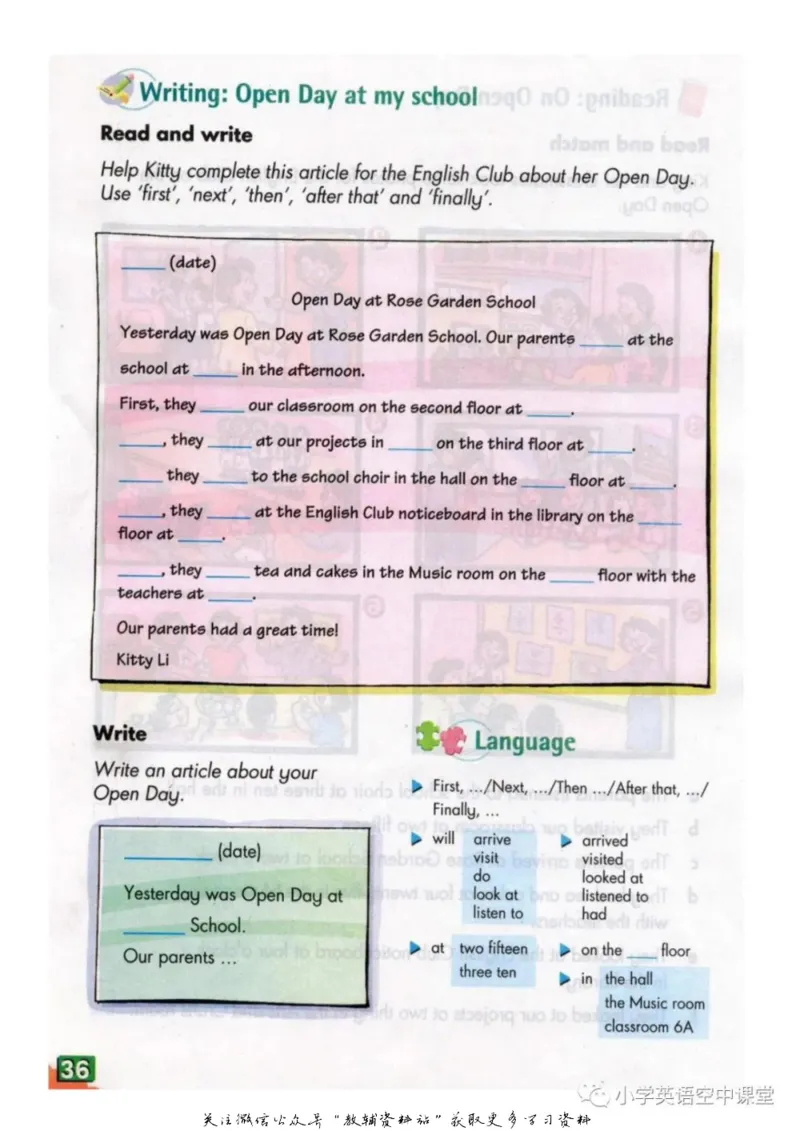 Writing: Open Day at my school
Read and write
Help Kitty complete this article for the English Club about her Open Day.
Use 'first', 'next', 'then', 'after that' and 'finally'.
_____ (date)
Open Day at Rose Garden School
Yesterday was Open Day at Rose Garden School. Our parents _____ at the
school at _____ in the afternoon.
First, they _____ our classroom on the second floor at _____.
_____, they _____ at our projects in _____ on the third floor at _____.
_____ they _____ to the school choir in the hall on the _____ floor at _____.
_____, they _____ at the English Club noticeboard in the library on the _____
floor at _____.
_____, they _____ tea and cakes in the Music room on the _____ floor with the
teachers at _____.
Our parents had a great time!
Kitty Li
Write
Write an article about your
Open Day.
_____ (date)
Yesterday was Open Day at
_____ School.
Our parents ...
Language
First, .../Next, .../Then .../After that, .../
Finally, ...
will arrive
visit
do
look at
listen to
arrived
visited
looked at
listened to
had
at two fifteen
three ten
on the ___ floor
in the hall
the Music room
classroom 6A
36
小学英语空中课堂
关注微信公众号"教辅资料站"获取更多学习资料